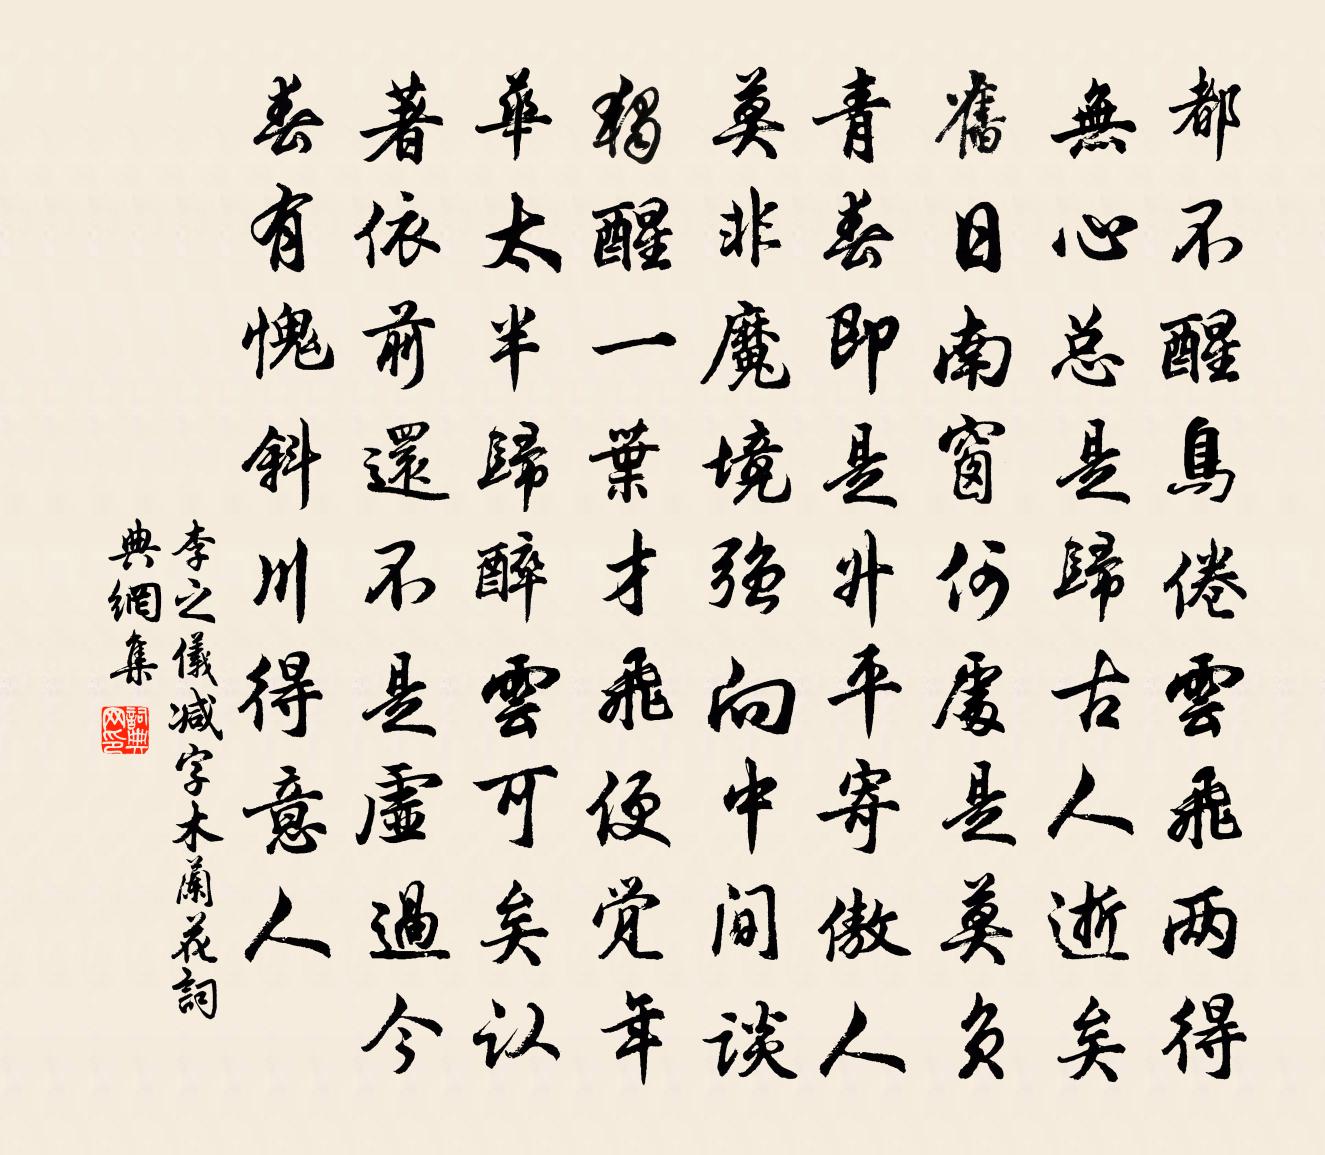 都不醒鳥倦雲飛两得
無心总是歸古人逝矣
舊日南窗何處是莫負
青春即是升平寄傲人
莫非魔境强向中间谈
獨醒一葉才飛便觉年
華太半歸醉雲可矣认
著依前還不是虚過今
春有愧斜川得意人
李之儀减字木蘭花詞
典網集
詞典网印